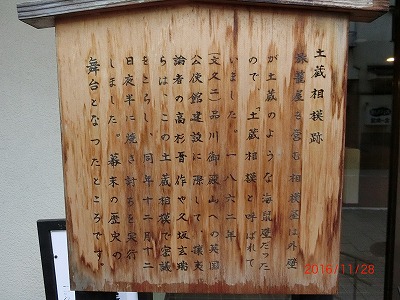 土蔵相模跡
旅籠屋を営む相模屋は外壁
が土蔵のような海鼠壁だった
ので、「土蔵相模」と呼ばれて
いました。一八六二年
(文久二)品川御殿山への英国
公使館建設に際して、攘夷
論者の高杉晋作や久坂玄瑞
らは、この土蔵相模で密議
をこらし、同年十二月十二
日夜半に焼き討ちを実行
しました。幕末の歴史の
舞台となったところです。
2016/11/28